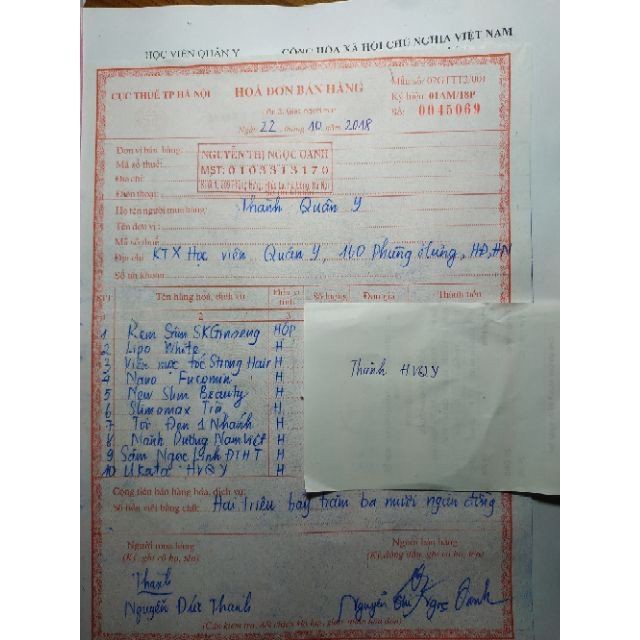 HỌC VIỆN QUÂN Y CỘNG HÒA XÃ HỘI CHỦ NGHĨA VIỆT NAM
CỤC THUẾ TP HÀ NỘI
HOÁ ĐƠN BÁN HÀNG
Mẫu số: 02GTTT3/001
Ký hiệu: 01AM/18P
Số: 0045069
Ngày 22 tháng 10 năm 2018
Đơn vị bán hàng:
NGUYỄN THỊ NGỌC OANH
Mã số thuế:
MST: 0103313170
Địa chỉ:
Điện thoại:
Họ tên người mua hàng: Thành Quân Y
Tên đơn vị:
Mã số thuế:
Địa chỉ KTX Học viện Quân Y, 160 Phùng Hưng, HĐ, HN
Số tài khoản
STT Tên hàng hoá, dịch vụ Đơn vị tính Số lượng Đơn giá Thành tiền
2 3
1 Kem Sâm SKGinseng HỘP
2 Lipo White H
3 Viên mọc tóc Strong Hair H
4 Nano Fucomin H
5 New Slim Beauty H
6 Slimomax Tím H
7 Tỏi Đen 1 Nhánh H
8 Mãnh Dương Nam Việt H
9 Sâm Ngọc Linh ĐTHT H
10 Ukata HVQY H
Thành HVQY
Cộng tiền bán hàng hóa, dịch vụ:
Số tiền viết bằng chữ: Hai triệu bảy trăm ba mươi ngàn đồng
Người mua hàng Người bán hàng
(Ký, ghi rõ họ, tên) (Ký, đóng dấu, ghi rõ họ, tên)
Thành
Nguyễn Đức Thành Nguyễn Thị Ngọc Oanh